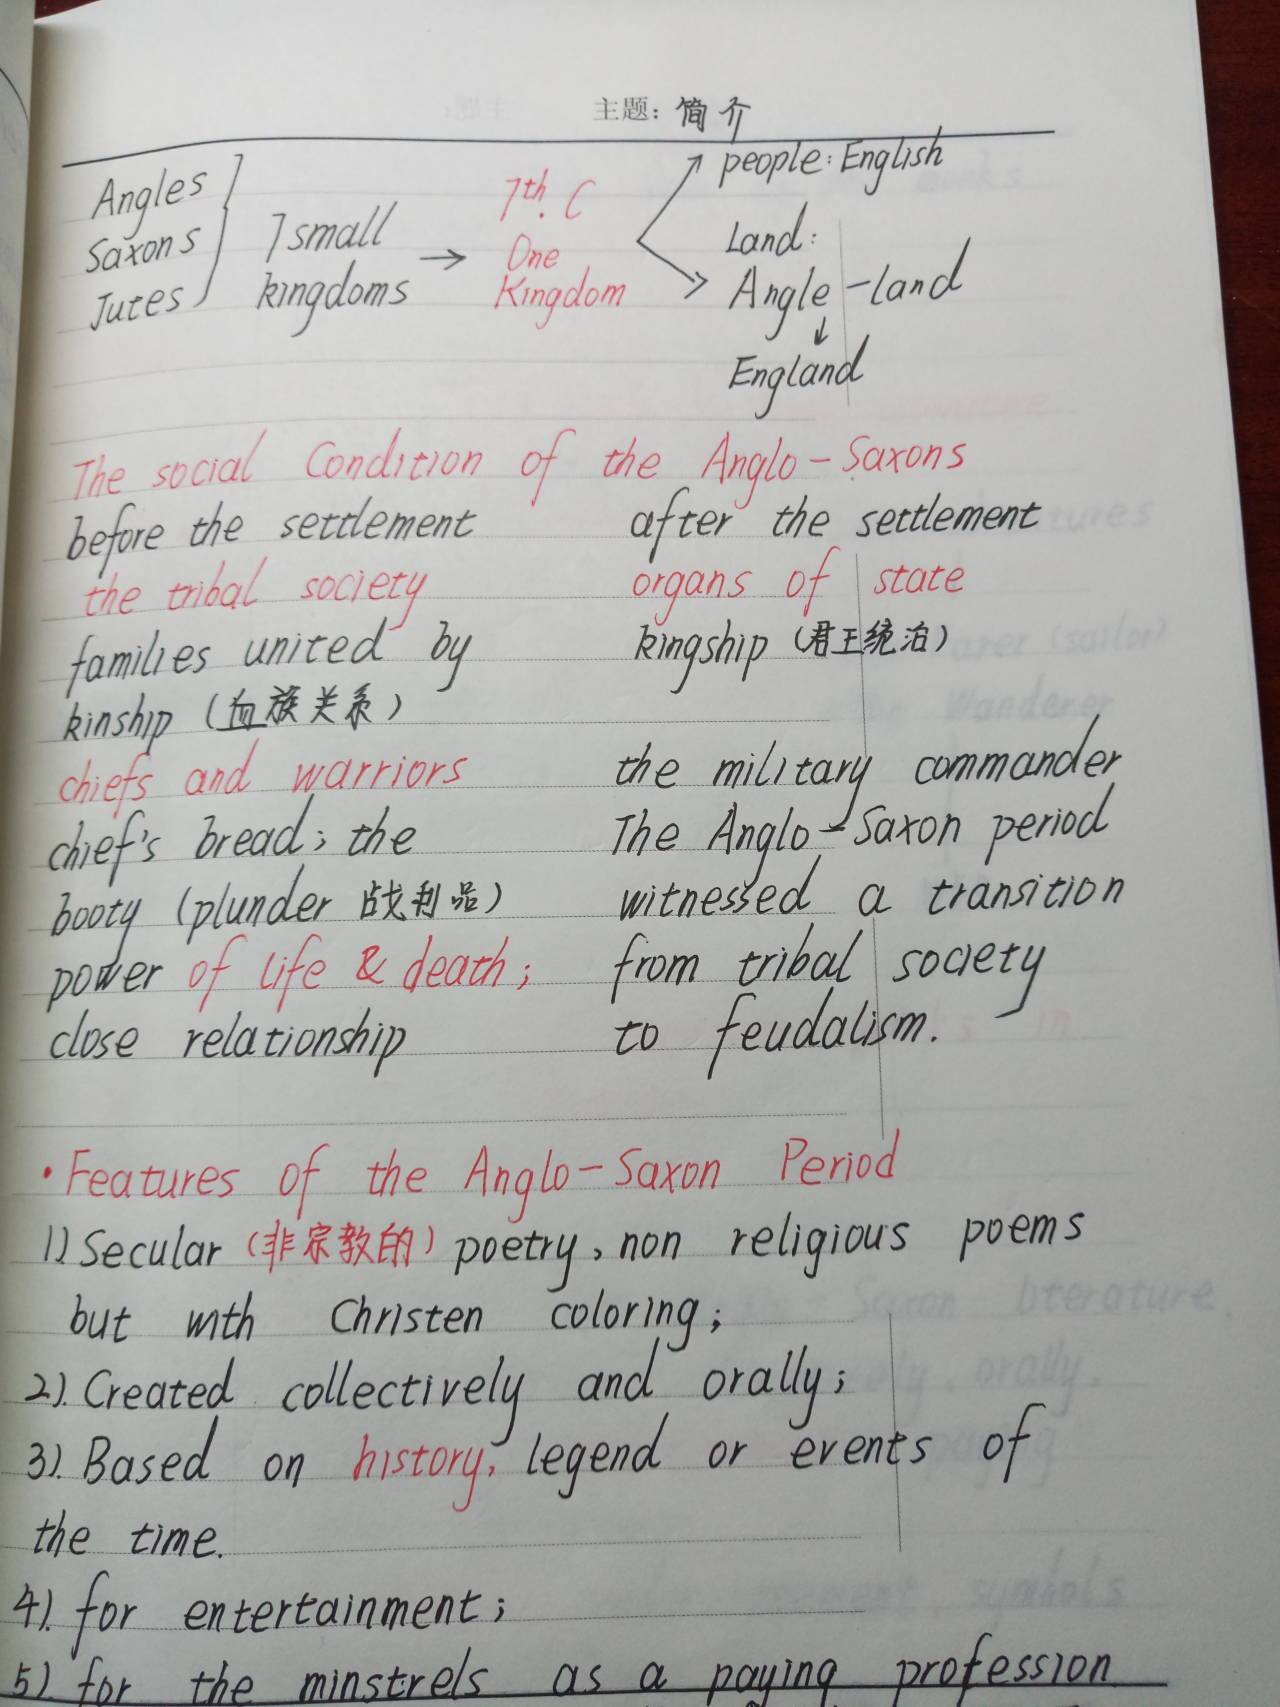 主题: 简介
Angles
Saxons
Jutes
7 small
kingdoms
→
7th. C
One
Kingdom
people: English
Land:
Angle-land
↓
England
The social Condition of the Anglo-Saxons
before the settlement
the tribal society
families united by
kinship (血族关系)
chiefs and warriors
chief's bread; the
booty (plunder 战利品)
power of life & death;
close relationship
after the settlement
organs of state
kingship (君王统治)
the military commander
The Anglo-Saxon period
witnessed a transition
from tribal society
to feudalism.
·Features of the Anglo-Saxon Period
1). Secular (非宗教的) poetry, non religious poems
but with Christen coloring;
2). Created collectively and orally;
3). Based on history, legend or events of
the time.
4). for entertainment;
5) for the minstrels as a paying profession